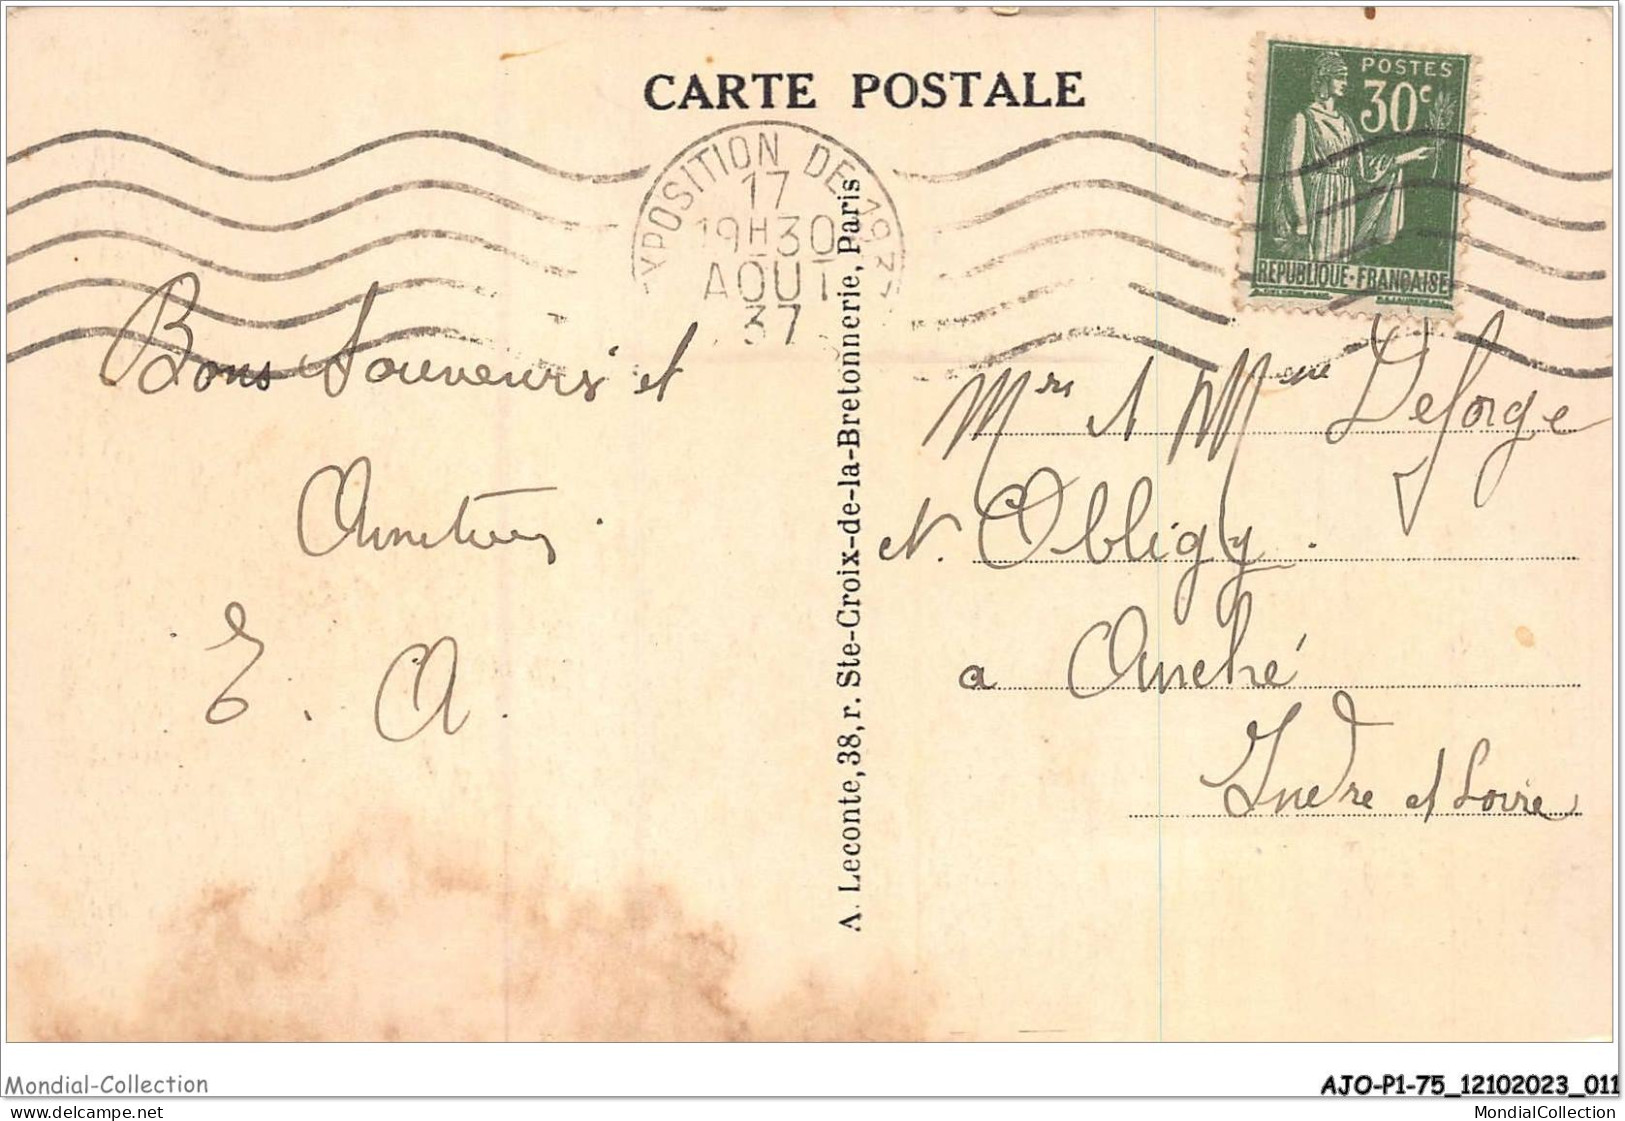 CARTE POSTALE
POSTES
30c
REPUBLIQUE-FRANÇAISE
XPOSITION DE 1937
17
19H30
AOUT
37
Bons Souvenirs et
Amitiés
E. A.
A. Leconte, 38, r. Ste-Croix-de-la-Bretonnerie, Paris
Mme Deforge
Obligy.
a Anché
Indre et Loire
Mondial-Collection
delcampe.net
AJO-P1-75_12102023_011
MondialCollection